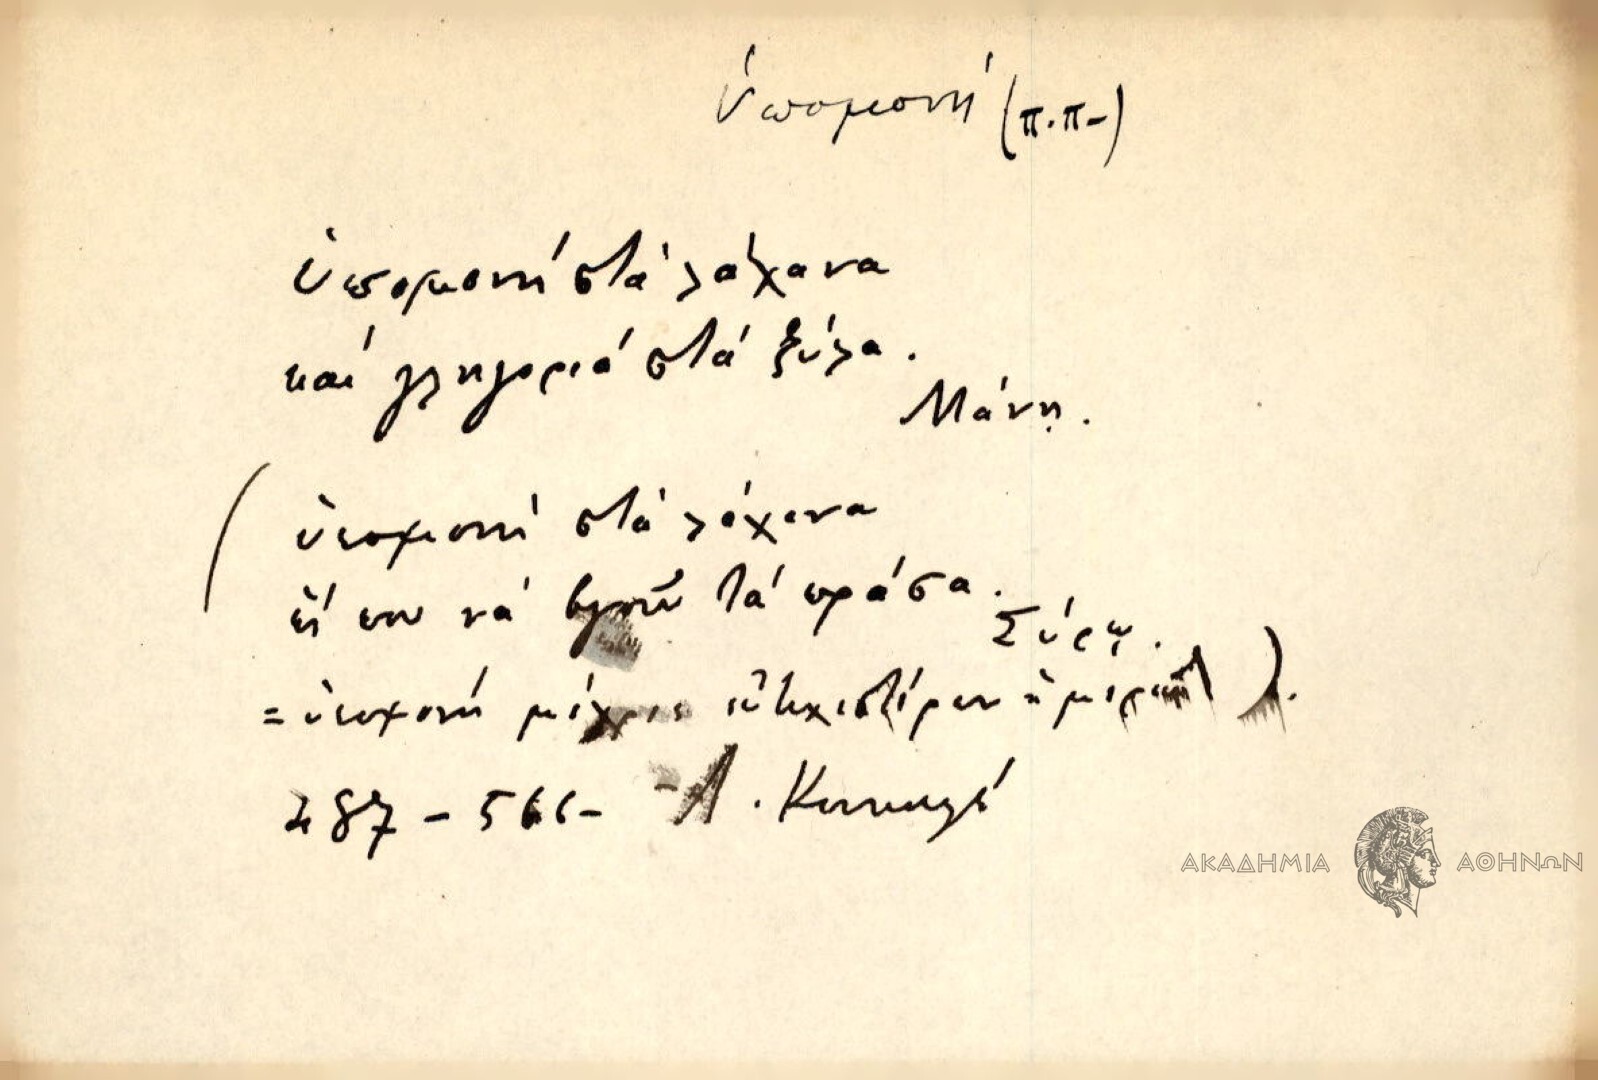 ὑπομονή (π.π-)
ὑπομονή στά λάχανα
καί γληγοριά στά ξύλα.
Μάνη.
(ὑπομονή στά λάχανα
που νά βγοῦν τά πράσα.
Σύρῳ.
=ὑπομονή μέχρις εὐτυχεστέρων ἡμερῶν).
287-566- Λ.
ΑΚΑΔΗΜΙΑ ΑΘΗΝΩΝ